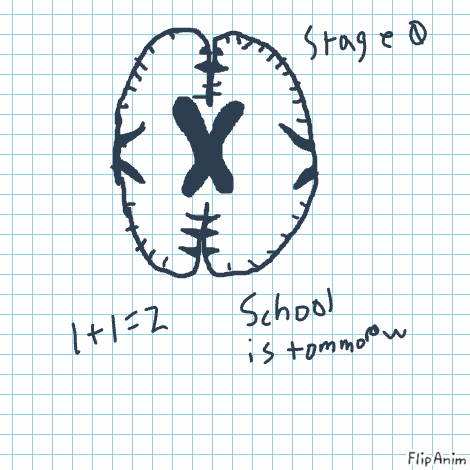 Stage 0
1+1=2
School
is tommorow
FlipAnim